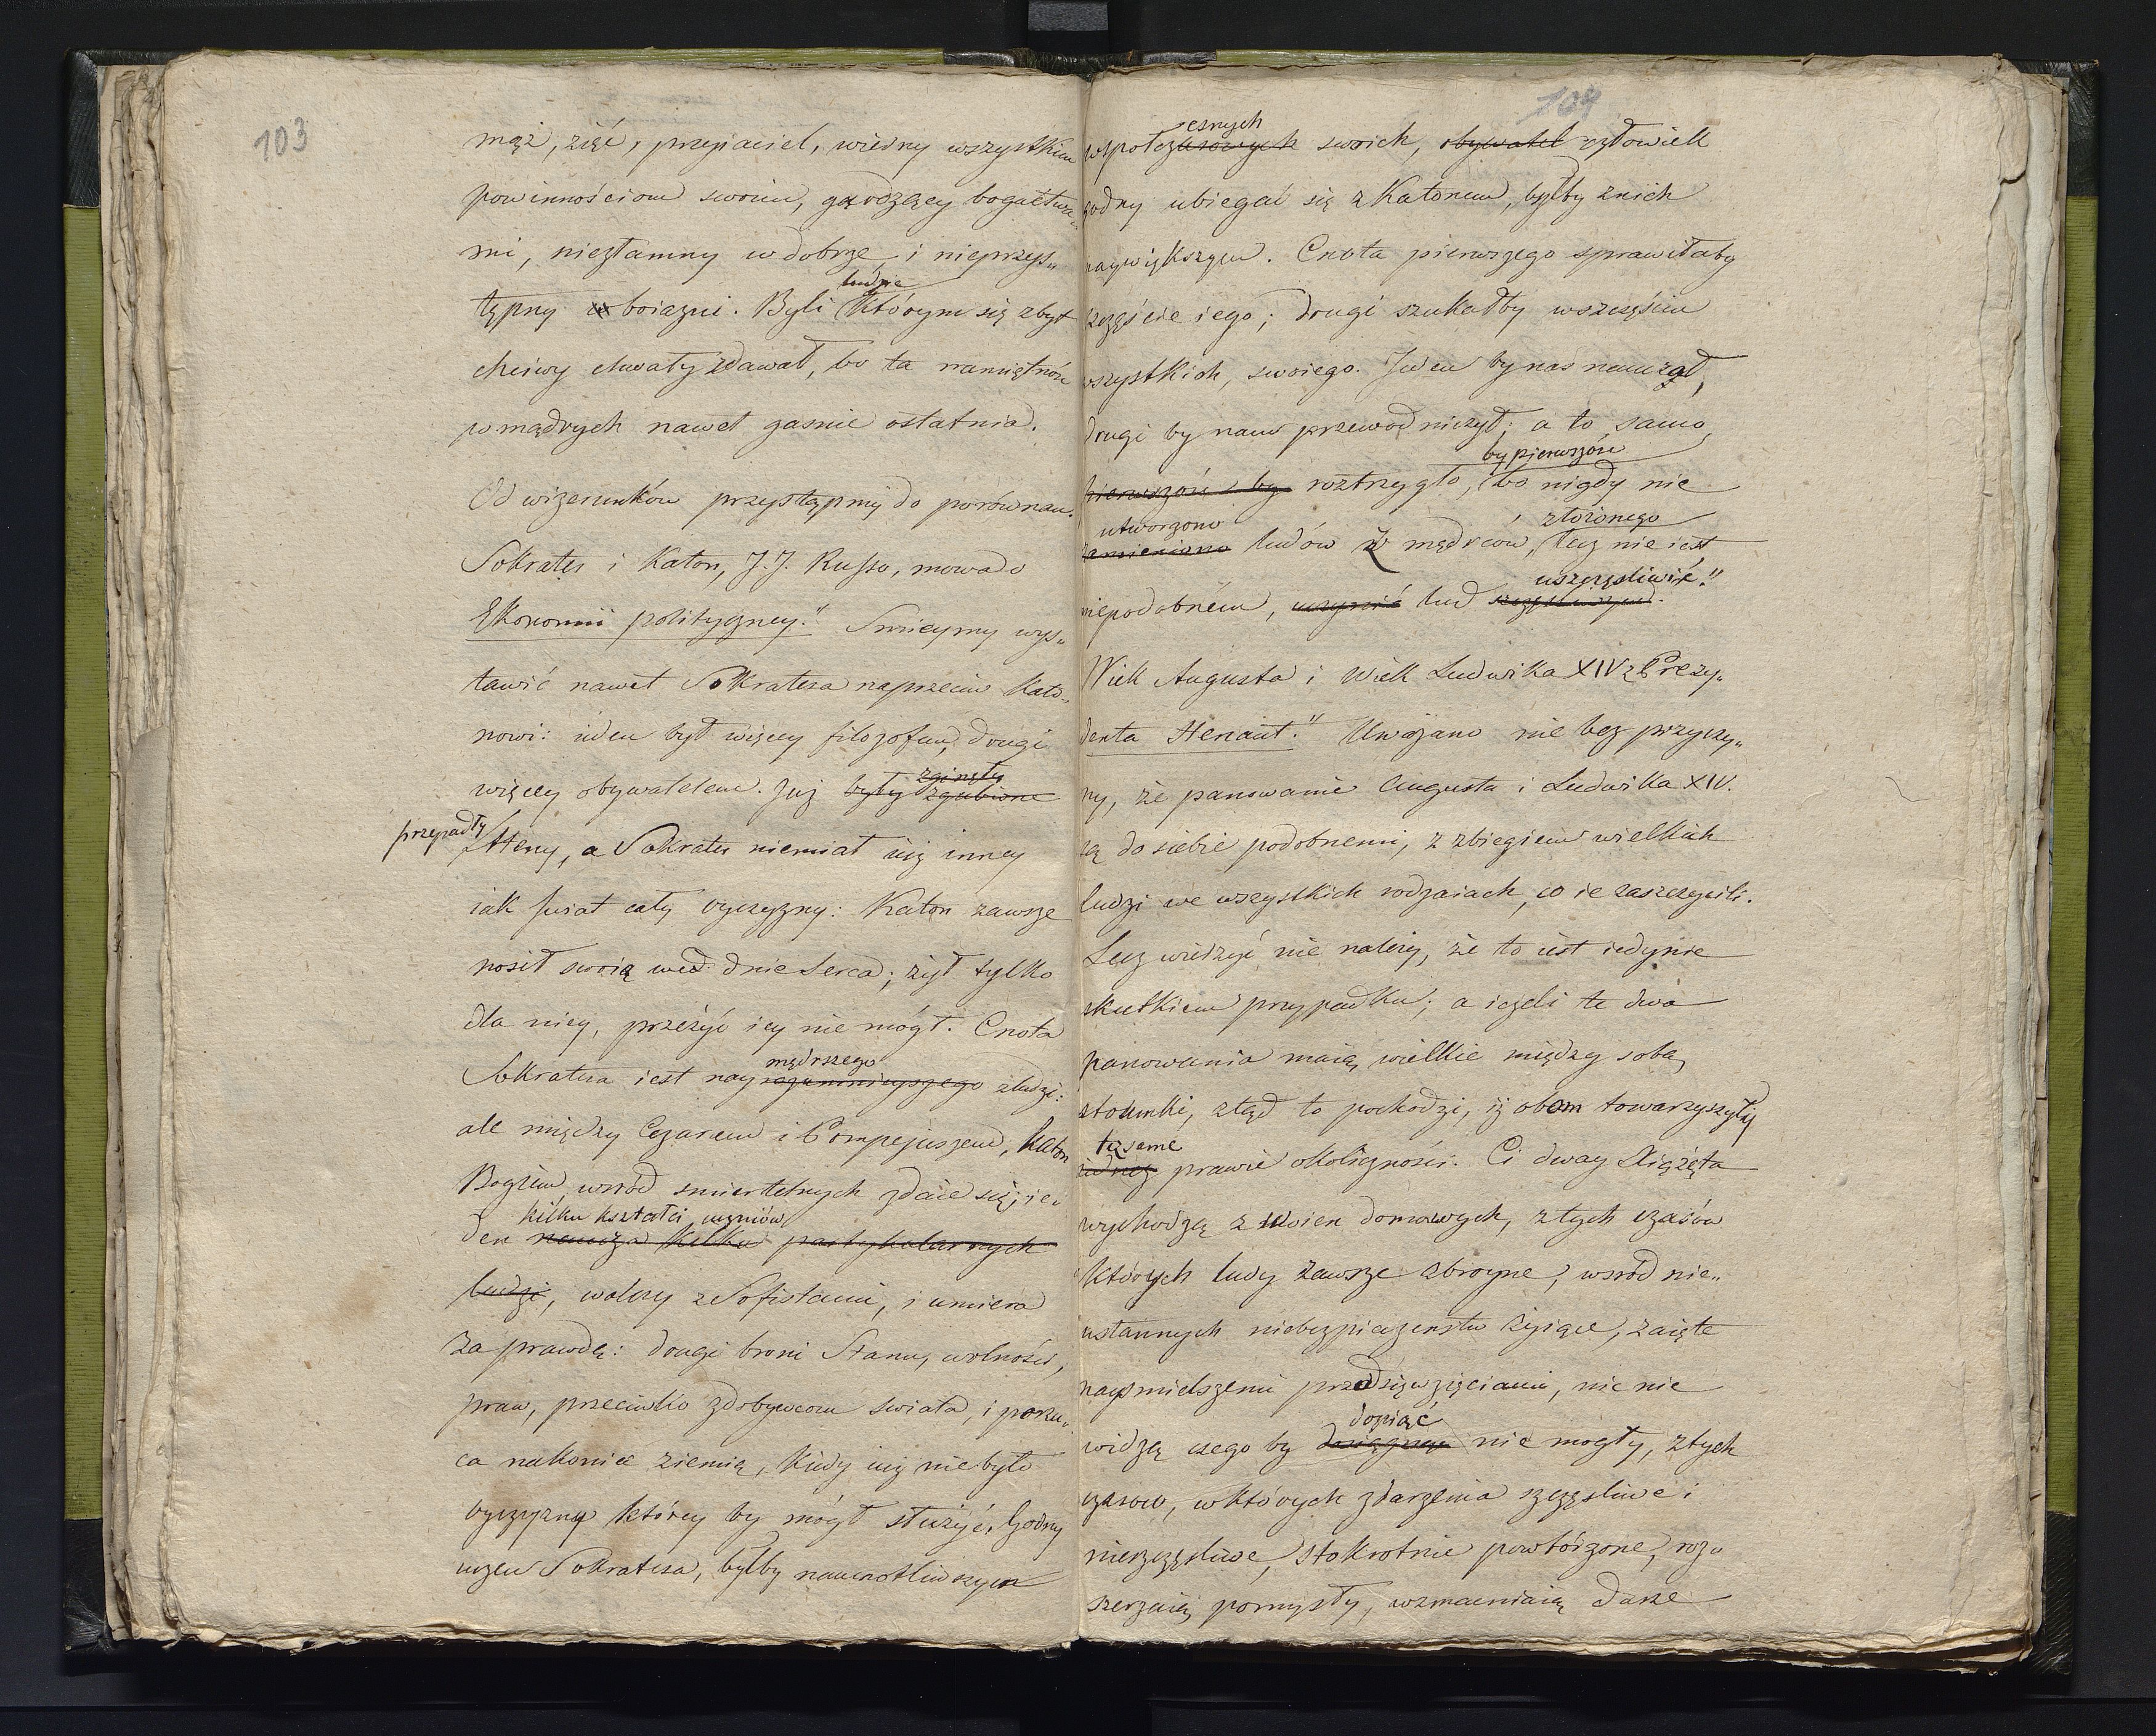 103
mąż, zięć, przyiaciel, wierny wszystkim
powinnościom swoim, gardzący bogactwa„
mi, niezłamny w dobrze i nieprzys„
ludzie
tępny w boiazni. Byli którym się zbyt
chciwy chwały zdawał, bo ta namiętność
w mądrych nawet gasnie ostatnia.
Od wizerunków przystąpmy do porównan.
Sokrates i Katon, J. J. Russo, mowa o
Ekonomii polityczney." Smieymy wys„
tawić nawet Sokratesa naprzeciw Kato„
nowi: ieden był więcey filozofem, drugi
zginęły
więcey obywatelem. Już były zgubione
przepadły Ateny, a Sokrates niemiał iuż inney
iak świat cały oyczyzny: Katon zawsze
nosił swoią we dnie serca; żył tylko
dla niey, przeżyć iey nie mógł. Cnota
mądrszego
Sokratesa iest nayrozumnieyszego zludzi:
ale między Cezarem i Pompejuszem, Katon
Bogiem wsród smiertelnych zdaie się; ie„
kilku kształci uczniów
den naucza kilku partykularnych
ludzi, walczy z Sofistami, i umiera
za prawdę: drugi broni Stanu, wolności,
praw, przeciwko zdobywcom swiata, i porzu„
ca nakoniec ziemię, kiedy iuż nie było
oyczyzny którey by mógł służyć. Godny
uczeń Sokratesa, byłby naycnotliwszym
104
esnych
wspołczasowych swoich, obywatel człowiek
godny ubiegać się z Katonem, byłby z nich
naywiększym. Cnota pierwszego sprawiłaby
szczęście iego; drugi szukałby w szczęściu
wszystkich, swoiego. Jeden by nas nauczał,
drugi by nam przewodniczył; a to samo
by pierwszość
pierwszość by roztrzygło, bo nigdy nie
utworzono złożonego
zamieniono ludów z mędrców, lecz nie iest
uszczęśliwić."
niepodobném, uczynić lud szczęśliwym.
Wiek Augusta i Wiek Ludwika XIV z Prezy„
denta Henaut." Uważano nie bez przyczy„
ny, że panowanie Augusta i Ludwika XIV.
są do siebie podobnemi, z zbiegiem wielkich
ludzi we wszystkich rodzaiach, co ie zaszczycili.
Lecz wierzyć nie należy, że to iest iedynie
skutkiem przypadku; a ieżeli te dwa
panowania maią wielkie między sobą
stosunki, ztąd to pochodzi, iż obom towarzyszyły
też same
iednez prawie okoliczności. Ci dway Xiążęta
wychodzą z woien domowych, z tych czasów
których ludy zawsze zbroyne, wsród nie„
ustannych niebezpieczeństw żyiące, zaięte
nayśmielszemi przedsięwzięciami, nic nie
dopiąć
widzą czego by dosięgnąć nie mogły, z tych
czasow, w których zdarzenia szczęśliwe i
nieszczęśliwe, stokrotnie powtórzone, roz„
szerzaią pomysły, wzmacniaią dusze